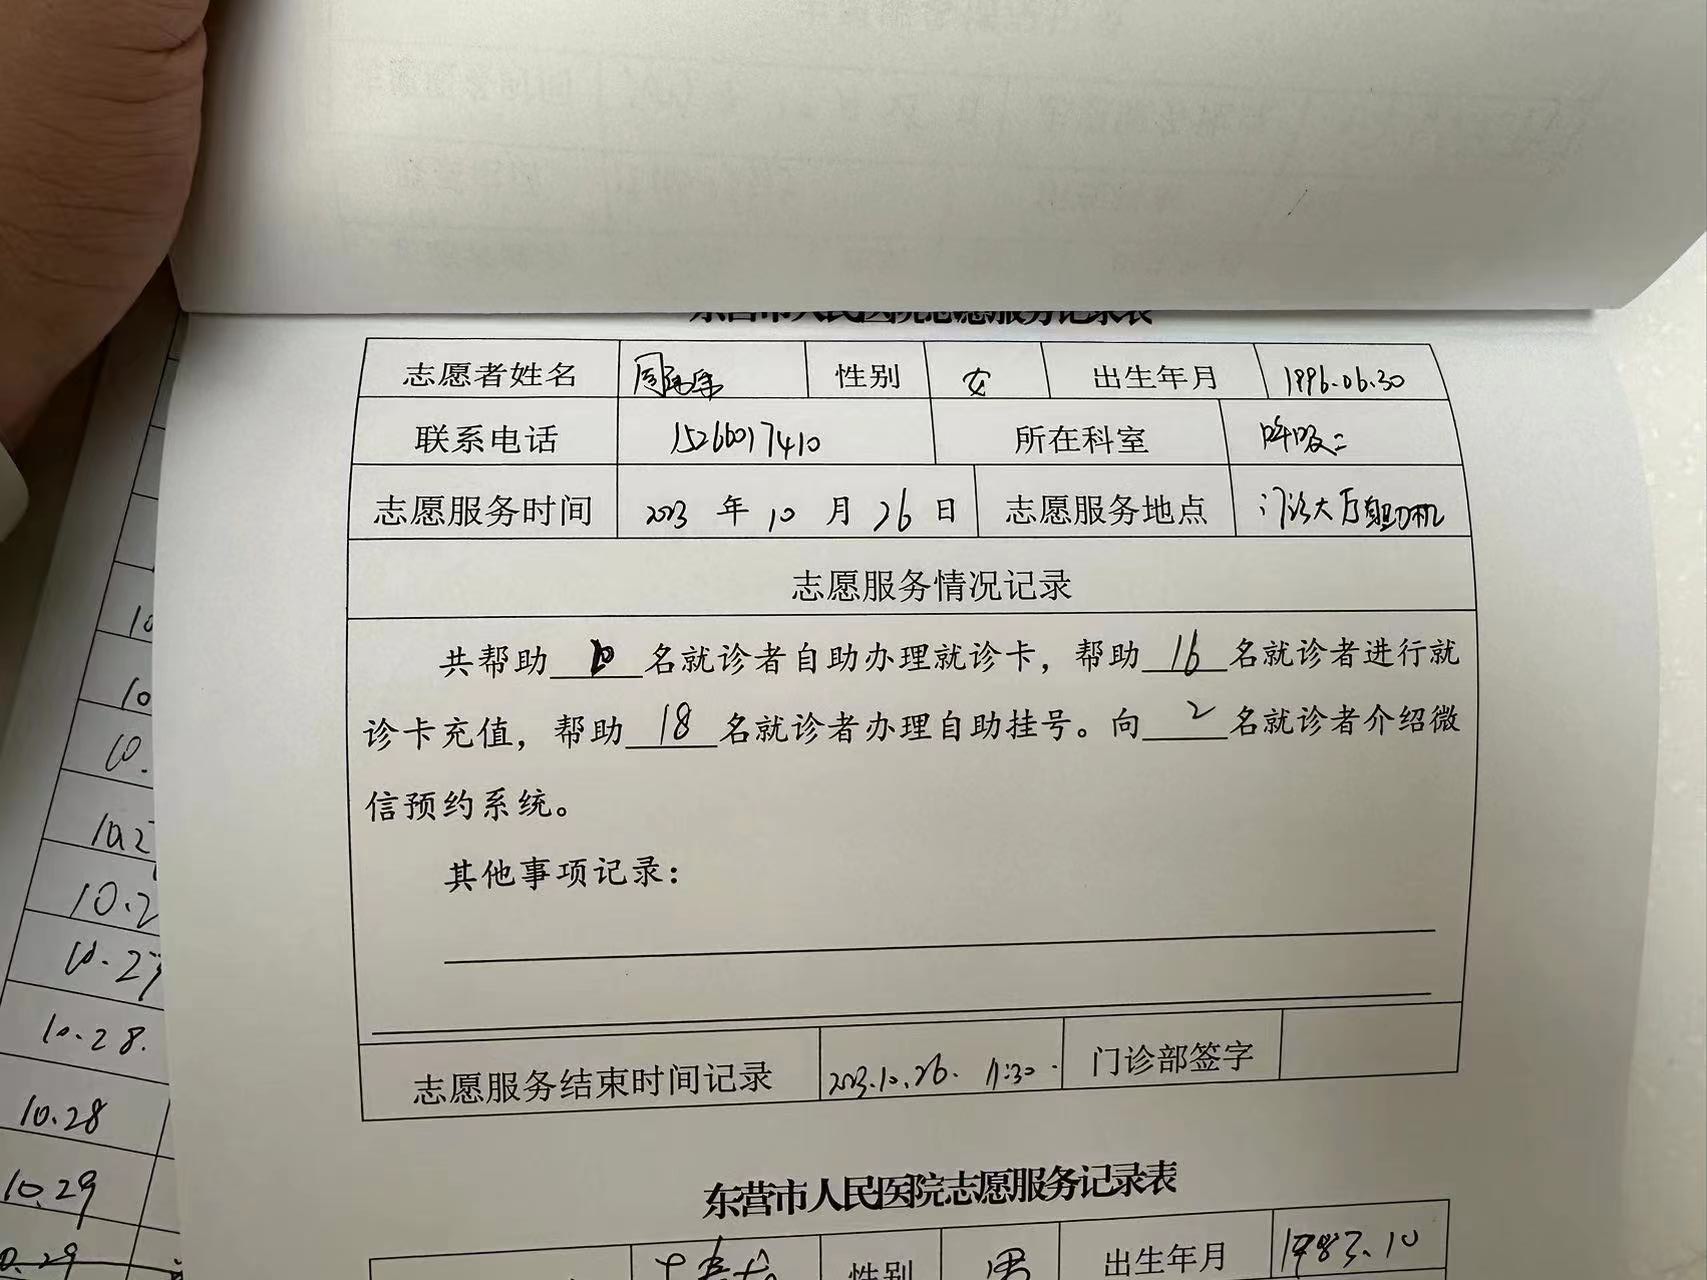 东营市人民医院志愿服务记录表
志愿者姓名 性别 女 出生年月 1996.06.30
联系电话 15266017410 所在科室 呼吸二
志愿服务时间 2023 年 10 月 26 日 志愿服务地点 门诊大厅自助机
志愿服务情况记录
共帮助 名就诊者自助办理就诊卡，帮助 16 名就诊者进行就
诊卡充值，帮助 18 名就诊者办理自助挂号。向 2 名就诊者介绍微
信预约系统。
其他事项记录：
志愿服务结束时间记录 2023.10.26. 11:30. 门诊部签字
东营市人民医院志愿服务记录表
性别 男 出生年月 1983.10
10
10
10.
10.2
10.2
10.27
10.28.
10.28
10.29
0.29